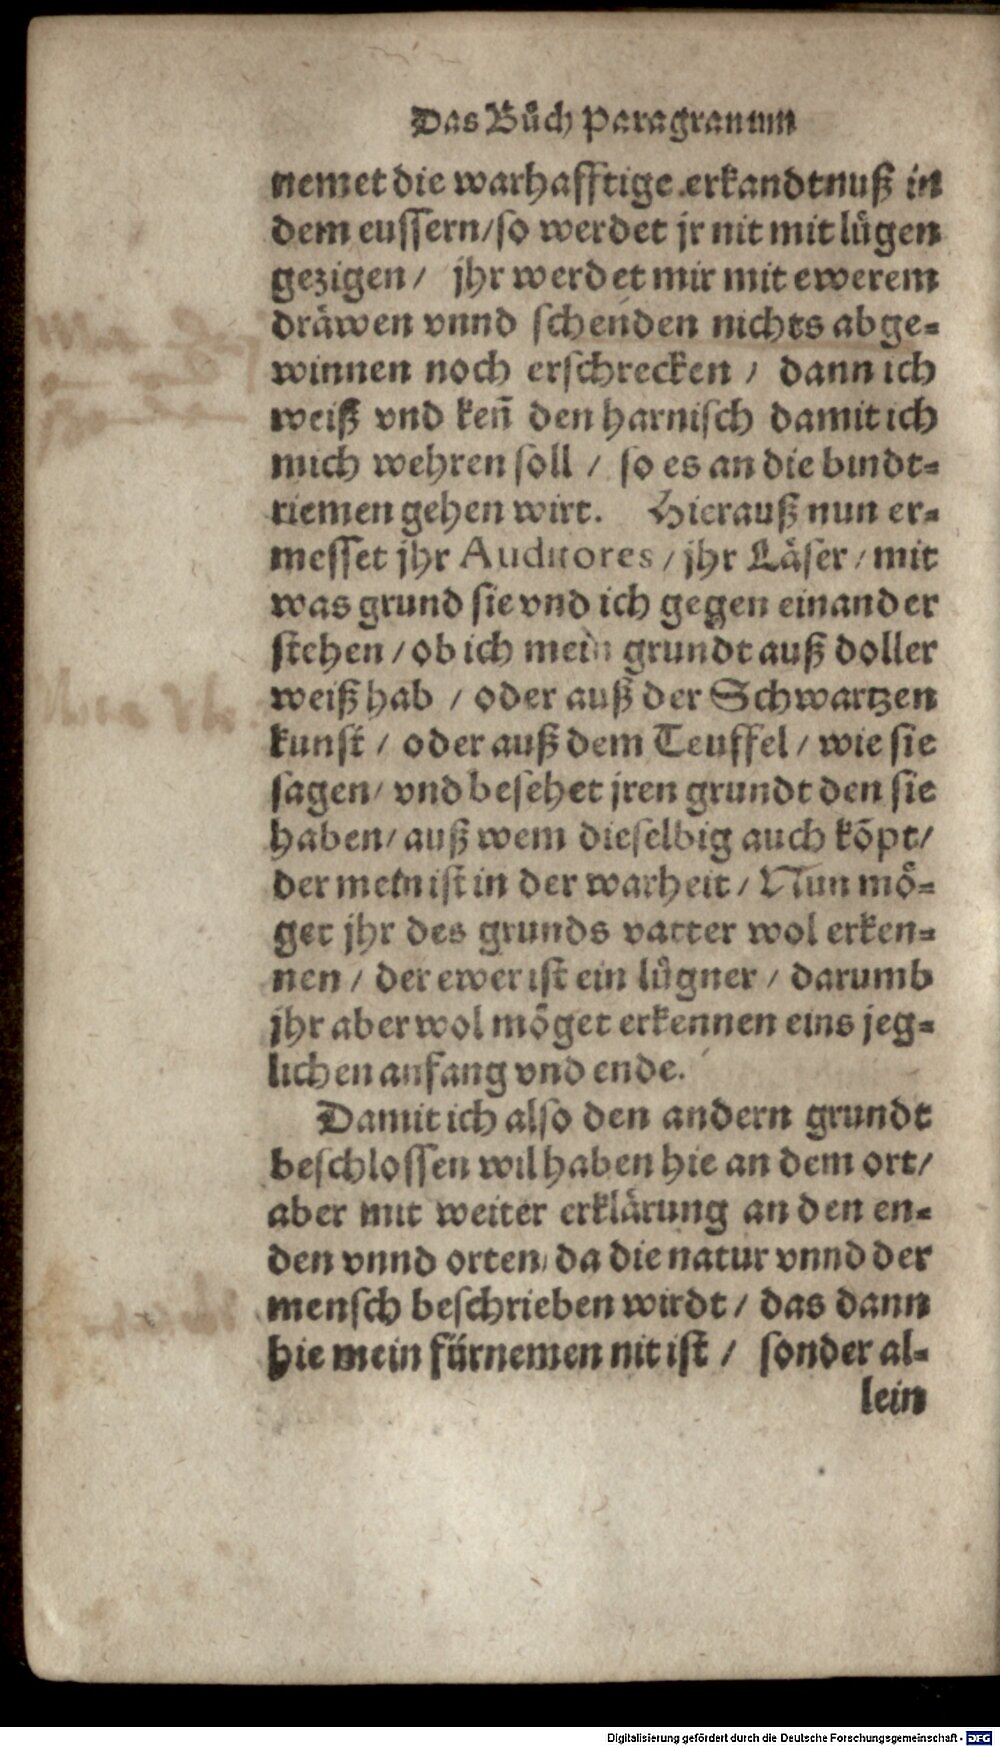 Das Bůch Paragranum
nemet die warhafftige erkandtnuß in
dem eussern/so werdet jr nit mit lůgen
gezigen/ jhr werdet mir mit ewerem
dräwen vnnd schenden nichts abge⸗
winnen noch erschrecken / dann ich
weiß vnd keñ den harnisch damit ich
mich wehren soll / so es an die bindt⸗
riemen gehen wirt. Hierauß nun er⸗
messet jhr Auditores/jhr Läser/mit
was grund sie vnd ich gegen einander
stehen/ob ich mein grundt auß doller
weiß hab / oder auß der Schwartzen
kunst / oder auß dem Teuffel/ wie sie
sagen/ vnd besehet jren grundt den sie
haben/ auß wem dieselbig auch kõpt/
der mein ist in der warheit / Nun mö⸗
get jhr des grunds vatter wol erken⸗
nen / der ewer ist ein lůgner / darumb
jhr aber wol möget erkennen eins jeg⸗
lichen anfang vnd ende.
Damit ich also den andern grundt
beschlossen wil haben hie an dem ort/
aber mit weiter erklärung an den en⸗
den vnnd orten/ da die natur vnnd der
mensch beschrieben wirdt / das dann
hie mein fürnemen nit ist / sonder al⸗
lein
Digitalisierung gefördert durch die Deutsche Forschungsgemeinschaft - DFG